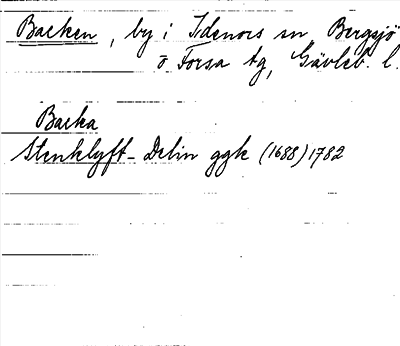 Backen, by i Idenors sn, Bergsjö
o Forsa tg, Gävleb. l.
Backa
Stenklyft - Delin ggk (1688) 1782